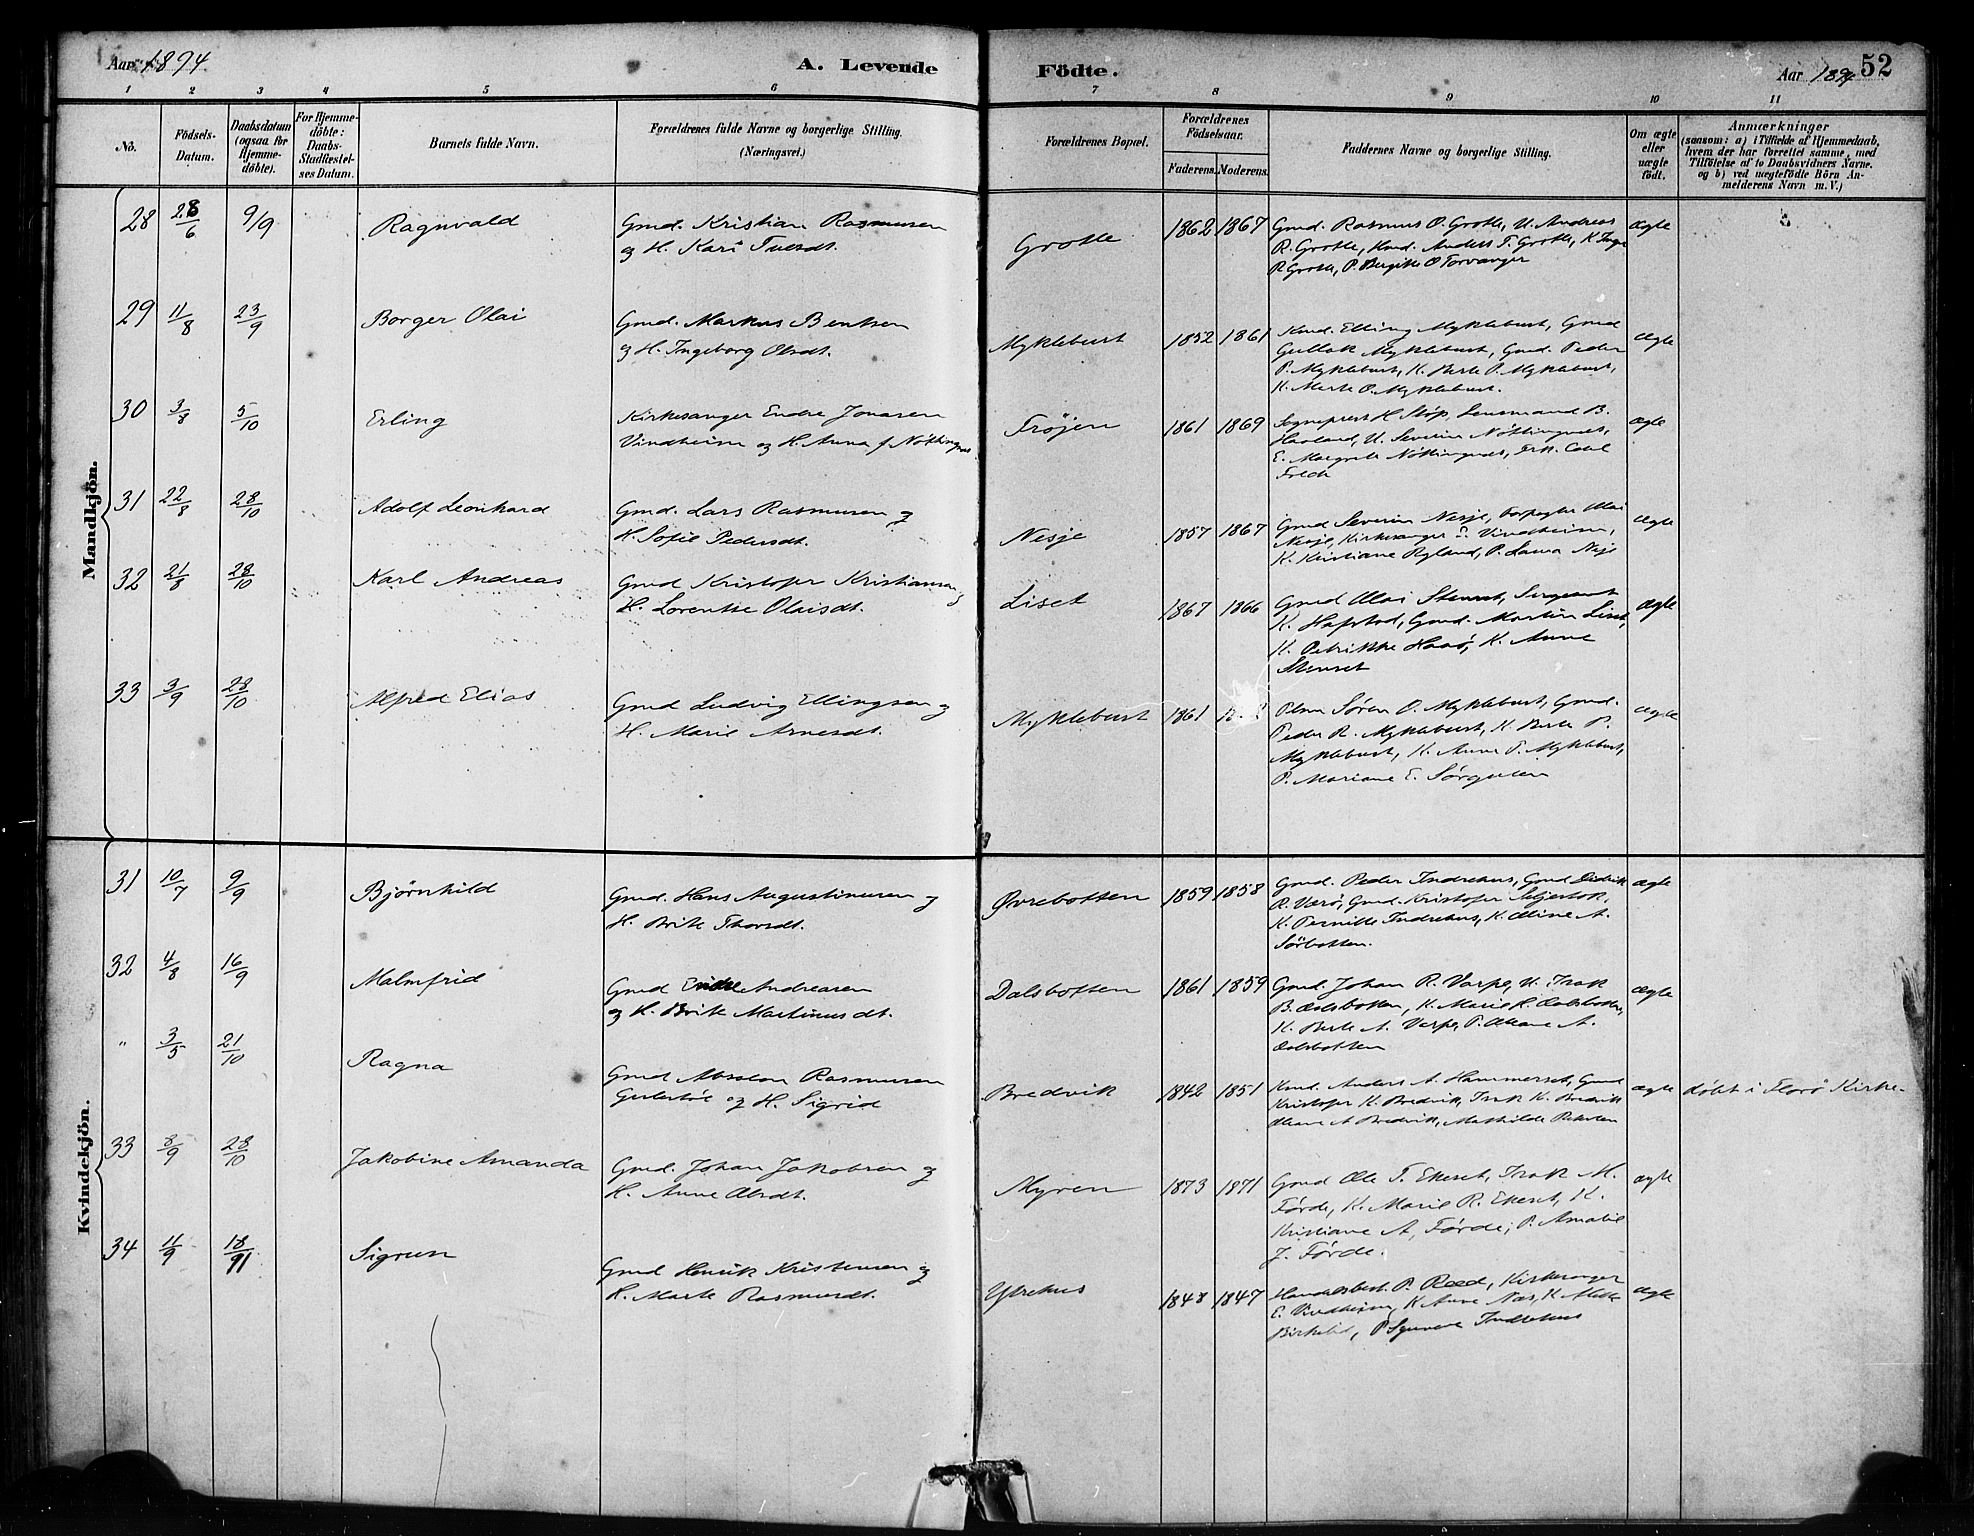 Aar 1894
A. Levende
Födte.
Aar 1894
52
1 2 3 4 5 6 7 8 9 10 11
No.
Födsels-
Datum.
Daabsdatum
(ogsaa for
Hjemme-
döbte).
For Hjemme-
döbte:
Daabs-
Stadfæstel-
ses Datum.
Barnets fulde Navn.
Forældrenes fulde Navne og borgerlige Stilling.
(Næringsvei.)
Forældrenes Bopæl.
Forældrenes
Födselsaar.
Faderens. Moderens.
Faddernes Navne og borgerlige Stilling.
Om ægte
eller
uægte
födt.
Anmærkninger
(saasom: a) i Tilfælde af Hjemmedaab,
hvem der har forrettet samme, med
Tilföielse af to Daabsvidners Navne.
og b) ved uægtefödte Börn An-
melderens Navn m. V.)
Mandkjön.
28 28/6 9/9 Ragnvald
Gmd. Kristian Rasmusen
og H. Kari
Grotle 1862 1867
Gmd. Rasmus O. Grotle, U. Andreas
R. Grotle, Kmd. Anders T. Grotle, K. Inga
R Grotle, P. Bergitte O Torvanger
ægte
29 11/8 23/9 Borger Olai
Gmd. Markus Bentsen
og H. Ingeborg Olsdt.
Myklebust 1852 1861
Kmd. Elling Myklebust, Gmd
Gullak Myklebust, Gmd. Peder
P. Myklebust, K. Berte P. Myklebust,
K. Marte O. Myklebust.
ægte
30 3/8 5/10 Erling
Kirkesanger Endre Jonasen
Vindheim og H. Anna f. Nøttingnes
Frøjen 1861 1869
Sogneprest H. Støp, Lensmand B.
Havland, U. Severin Nøttingnes,
E. Margrete Nøttingnes, Frk.
ægte
31 22/8 28/10 Adolf Leonhard
Gmd. Lars Rasmusen og
H. Sofie Pedersdt.
Nesje 1857 1867
Gmd Severin Nesje, Olai
Nesje, Kirkesanger E. Vindheim,
K. Kristiane Ryland, P. Laura Nesje
ægte
32 21/8 28/10 Karl Andreas
Gmd Kristofer Kristiansen og
H. Lorentse Olaisdt.
Liset 1867 1866
Gmd Olai Stenset, Sergeant
K. Hafstad, Gmd. Martin Liset,
K. Petrikke Haasø, K. Anne
Stenset
ægte
33 3/9 28/10 Alfred Elias
Gmd Ludvig Ellingsen og
H. Marie Arnesdt.
Myklebust 1861
Søren O. Myklebust, Gmd.
Peder R. Myklebust, K. Berte P.
Myklebust, K. Anne P. Myklebust,
P. Mariane E. Sørgulen
ægte
Kvindekjön.
31 10/7 9/9 Bjørnhild
Gmd. Hans Augustinusen og
H. Brite Thorsdt.
Øvrebotten 1859 1858
Gmd. Peder Indrehus, Gmd Didrik
R. Værø, Gmd. Kristofer
K. Pernille Indrehus, K. Oline A.
Sørbotten.
ægte
32 4/8 16/9 Malmfrid
Gmd Endre Andreasen
og H. Brite Martinusdt.
Dalsbotten 1861 1859
Gmd. Johan R. Varpe, U. Isak
B. Dalsbotten, K. Marie R. Dalsbotten,
K. Berte A. Varpe, P. Oliane A.
Dalsbotten
ægte
" 3/5 21/10 Ragna
Gmd Absalon Rasmusen
og H. Sigrid
Bredvik 1842 1851
Kmd. Anders A. Hammerset, Gmd
Kristofer K. Bredvik, Isak K. Bredvik
Oliane A Bredvik, Mathilde
ægte døbt i Florø Kirke.
33 8/9 28/10 Jakobine Amanda
Gmd. Johan Jakobsen og
H. Anne Olsdt.
Myren 1873 1871
Gmd Ole T. Ekeset, Isak M.
Førde, K. Marie R. Ekeset, K.
Kristiane A. Førde, P. Amalie
J. Førde.
ægte
34 11/9 18/11 Sigrun
Gmd Henrik Kristensen og
H. Marte Rasmusdt.
Ytrehus 1848 1847
Handelsbest. P. Roed, Kirkesanger
E. Vindheim, K Anne Næs, K. Mette
Birkelid, P Indrehus
ægte